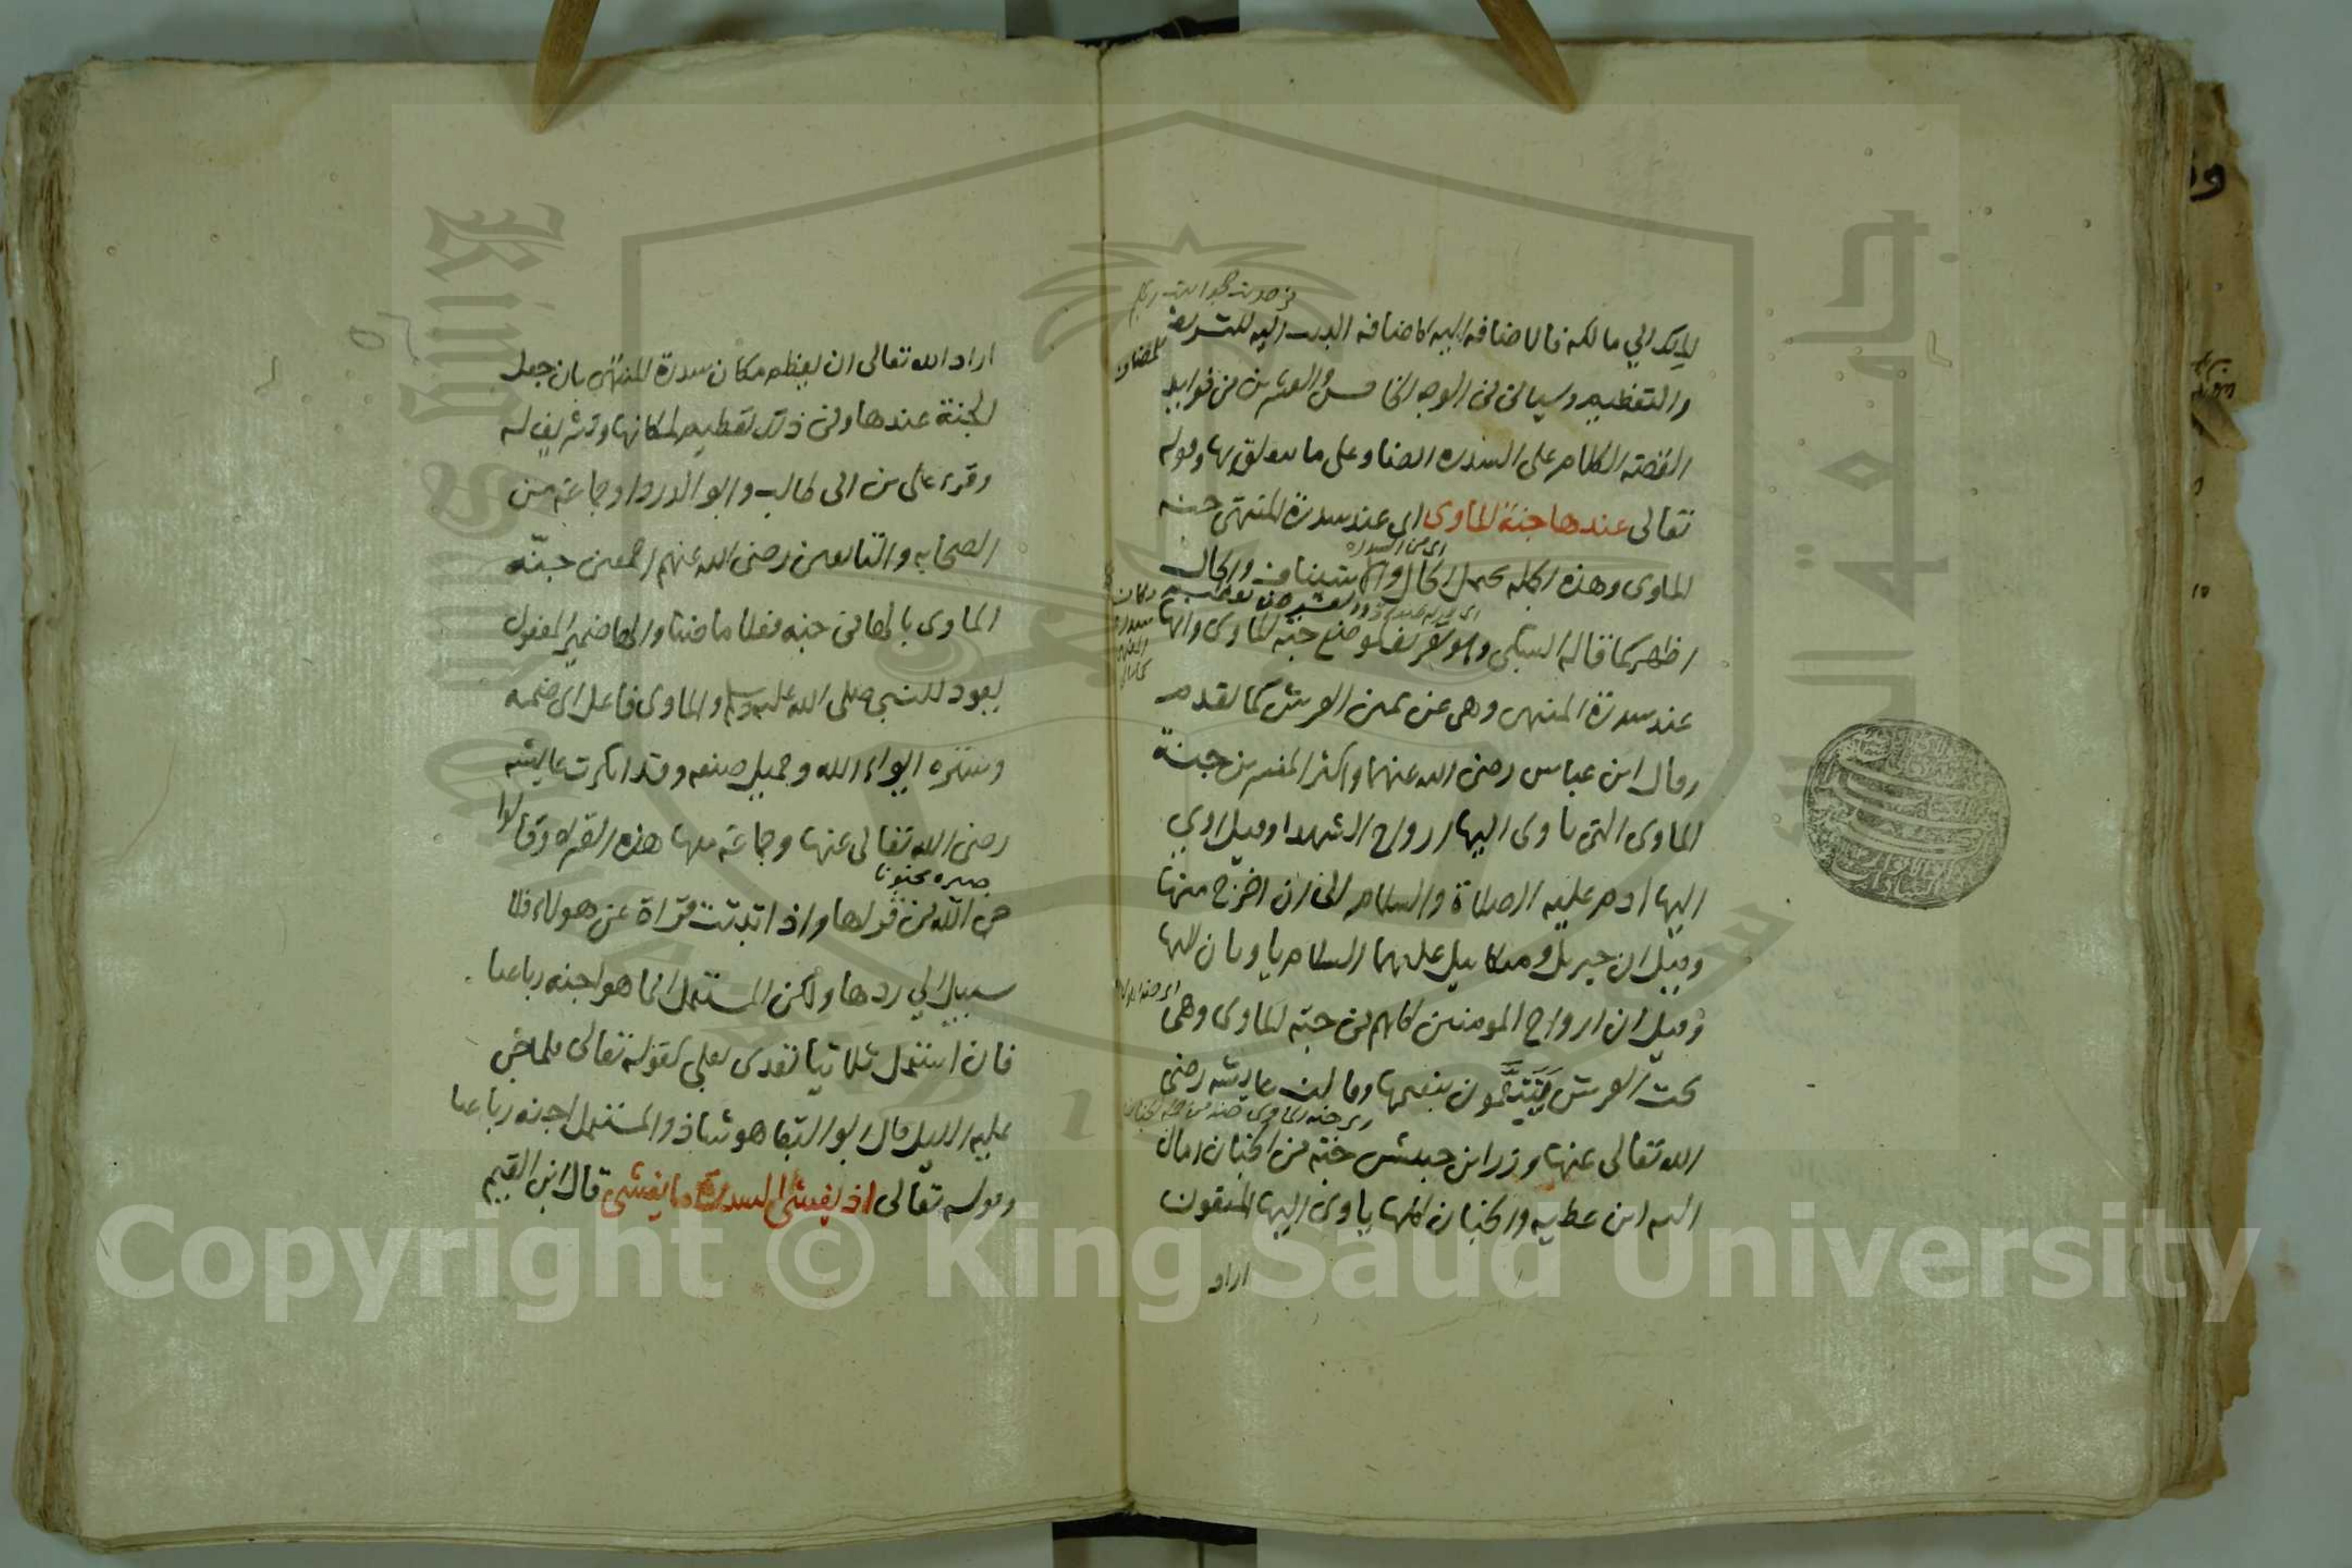 الملك الي مالكه فالاضافه اليه كاضافه البيت اليه للتشريف
والتعظيم وسياتي في الوجه الخامس والعشرين من فوايد
القصة الكلام على السدره ايضا وعلى ما يتعلق بها وقوله
تعالى عندها جنة الماوى اي عند سدرة المنتهى جنه
الماوى وهذه الجمله تحتمل الحال والاستيناف والحال
اظهر كما قاله السبكي وهو تعريف لموضع جنة الماوى وانها
عند سدرة المنتهى وهي عن يمين العرش كما تقدم
وقال ابن عباس رضي الله عنهما واكثر المفسرين جنة
الماوى التي ياوى اليها ارواح الشهدا وقيل اوي
اليها ادم عليه الصلاة والسلام الى ان اخرج منها
وقيل ان جبريل وميكاييل عليهما السلام ياويان اليها
وقيل ان ارواح المومنين كلهم في جنة الماوى وهي
تحت العرش يتنعمون بنعيمها وقالت عايشه رضي
الله تعالى عنها وزر ابن حبيش جنة من الجنان امال
اليه ابن عطيه والجنان كلها ياوى اليها المتقون
اراد
اراد الله تعالى ان يعظم مكان سدرة المنتهى بان جعل
الجنة عندها وفي ذلك تعظيم لمكانها وتشريف له
وقرء على بن ابى طالب وابو الدردا وجماعة من
الصحابه والتابعين رضي الله عنهم اجمعين جنّه
الماوى بالها في جنه فعلا ماضيا والها ضمير المفعول
يعود للنبي صلى الله عليه وسلم والماوى فاعل اى ضمه
وستره ايواء الله وجميل صنعه وقد انكرت عايشه
رضي الله تعالى عنها وجماعة معها هذه القراه وقالوا
صيره مجنونا
من الله من قراها واذا ثبتت قراة عن هولاء فلا
سبيل الي ردها ولكن المستعمل انما هو اجنه رباعيا
فان استعمل ثلاثيا تعدى بعلى كقوله تعالى فلما جن
عليه الليل قال ابو البقا هو شاذ والمستعمل اجنه رباعيا
وقوله تعالى اذ يغشى السدرة ما يغشى قال ابن القيم
Copyright © King Saud University